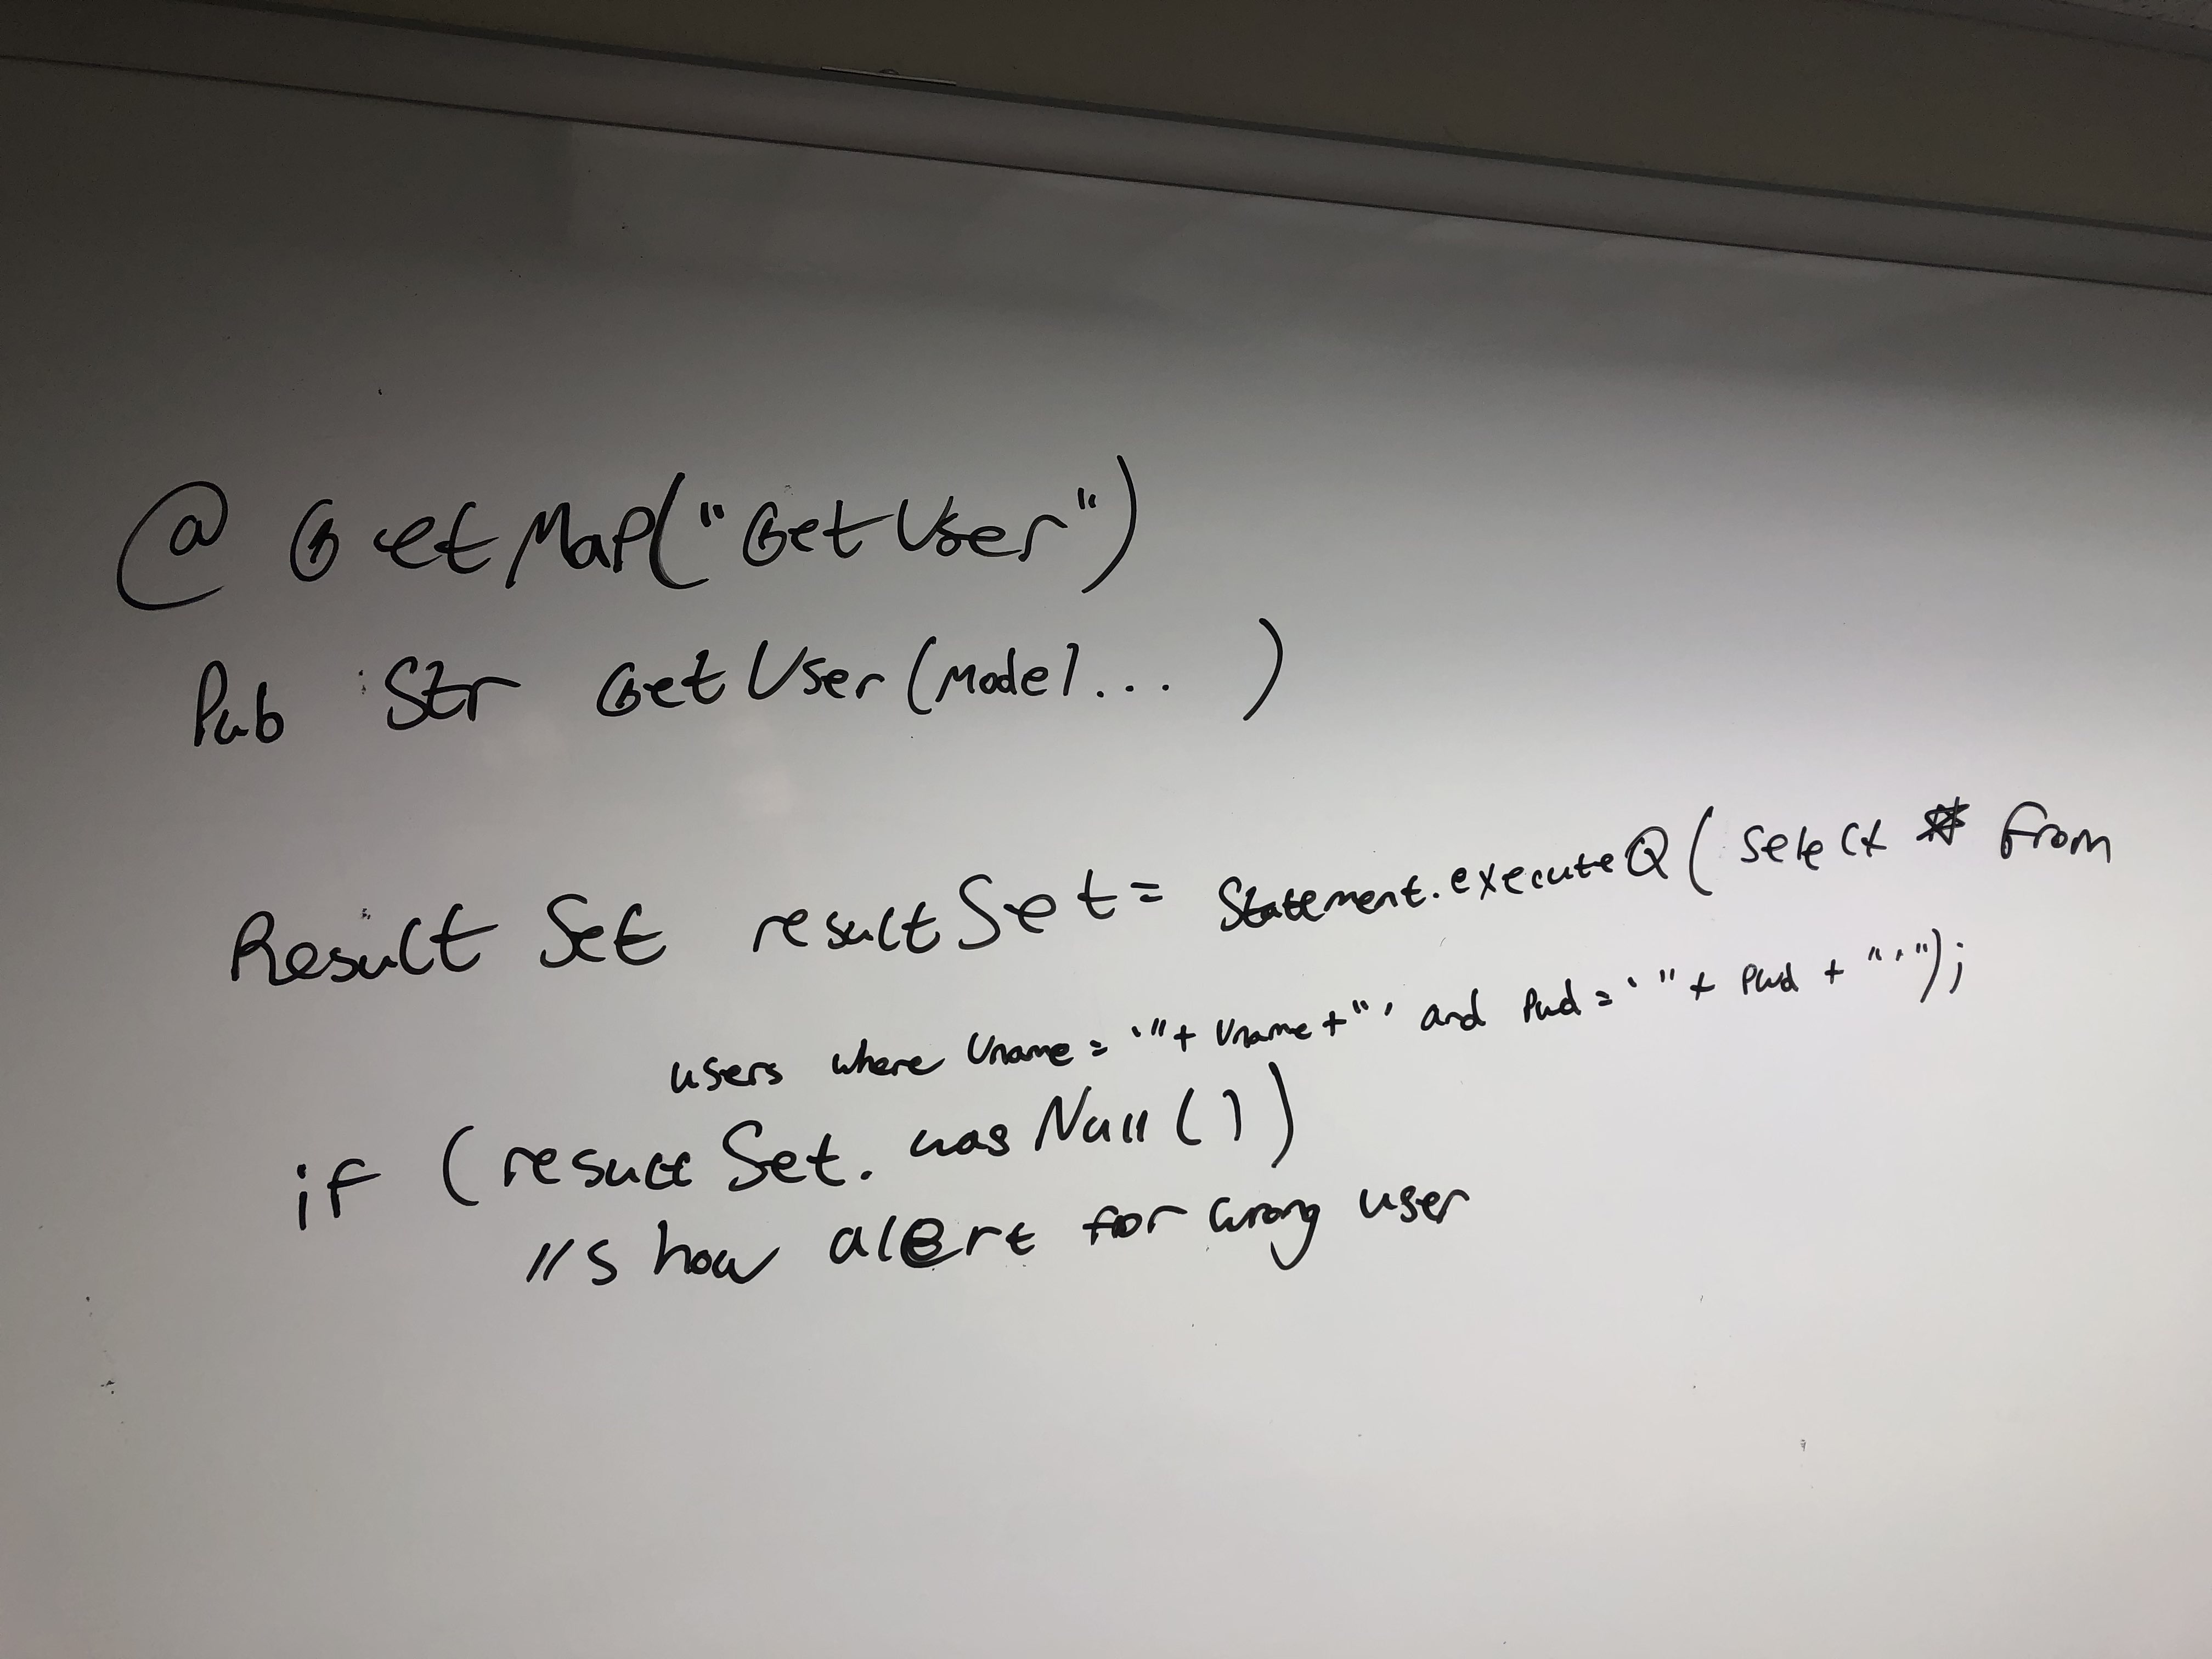 @ GetMap("GetUser")
Pub Str GetUser(Model... )
Result Set resultSet= Statement.executeQ( select * from
users where Uname = '"+ Uname +"' and Pwd = '"+ Pwd + "'");
if (resultSet. wasNull())
//show alert for wrong user